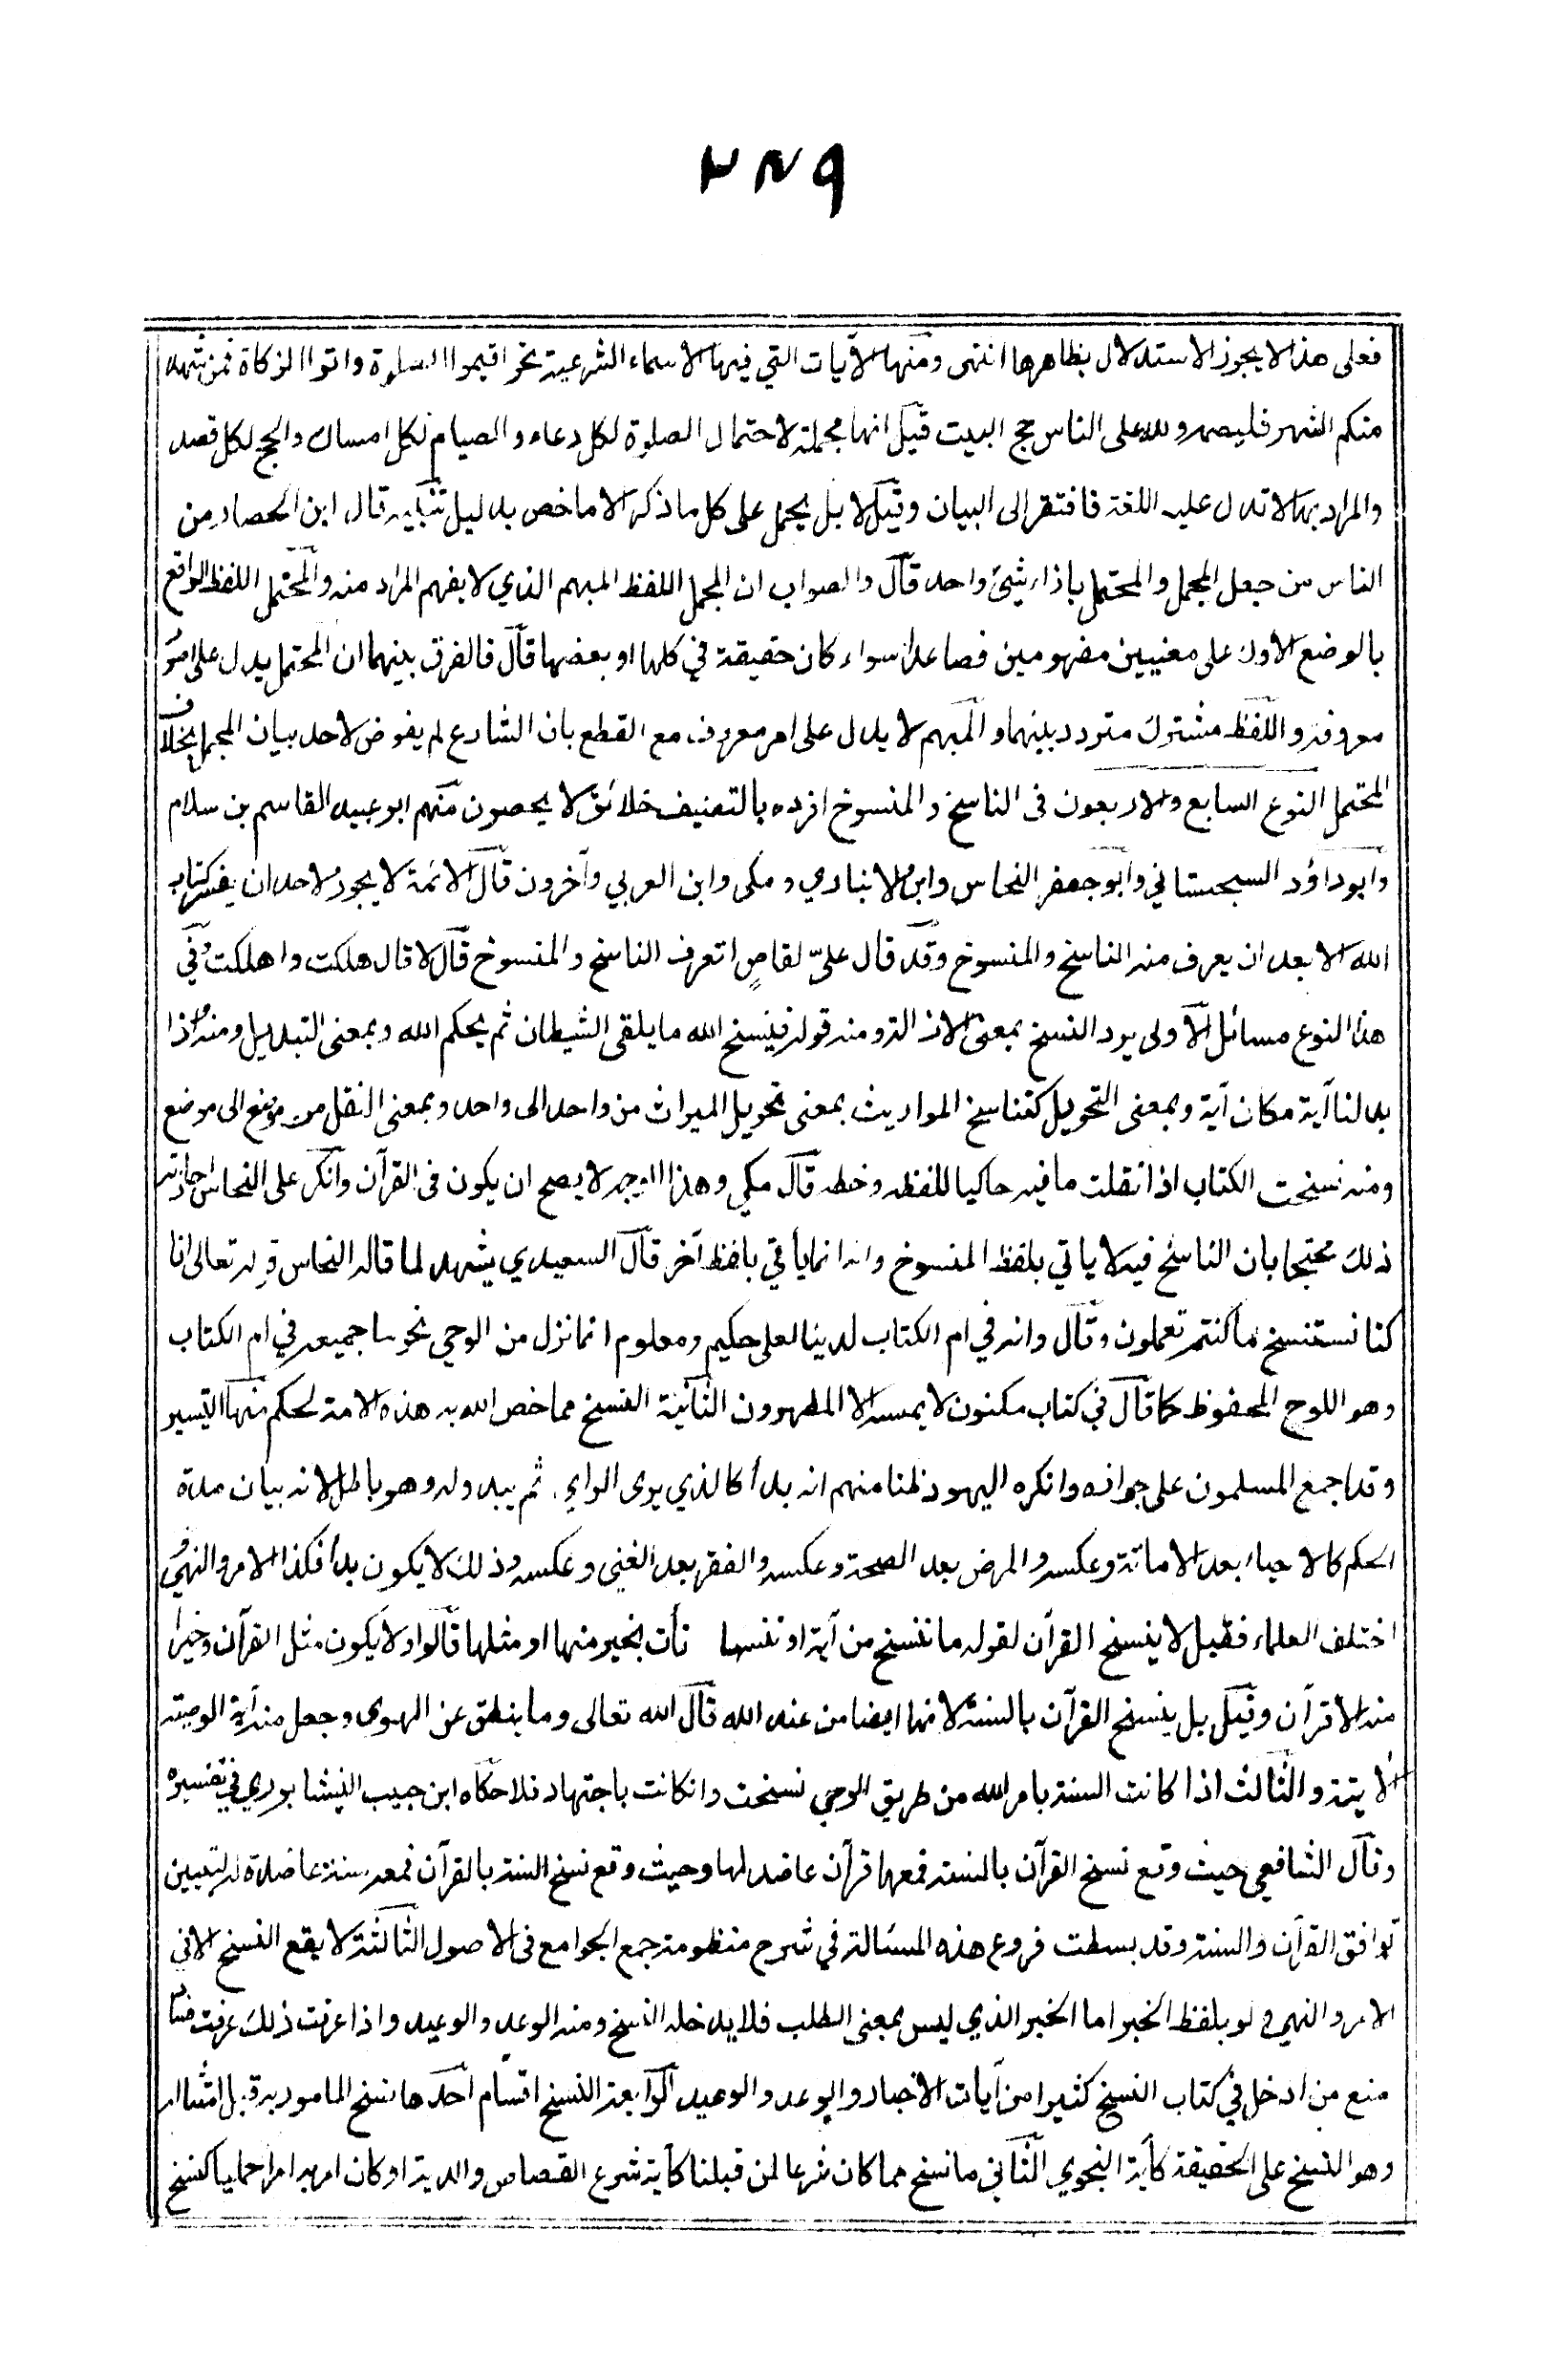 ٣٨٩
فعلى هذا لا يجوز الاستدلال بظاهرها انتهى ومنها الآيات التي فيها الاسماء الشرعية نحو اقيموا الصلوة واتوا الزكاة فمن شهد
منكم الشهر فليصمه ولله على الناس حج البيت قيل انها مجملة لاحتمال الصلوة لكل دعاء والصيام لكل امساك والحج لكل قصد
والمراد بها لا تدل عليه اللغة فافتقر الى البيان وقيل لا بل يحمل على كل ما ذكر الا ما خص بدليل تنبيه قال ابن الحصار من
الناس من جعل المجمل والمحتمل باذاء شيئ واحد قال والصواب ان المجمل اللفظ المبهم الذي لا يفهم المراد منه والمحتمل اللفظ الواقع
بالوضع الاول على معنيين مفهومين فصاعدا سواء كان حقيقة في كلها او بعضها قال فالفرق بينهما ان المحتمل يدل على امور
معروفة واللفظ مشترك متردد بينهما والمبهم لا يدل على امر معروف مع القطع بان الشارع لم يفوض لاحد بيان المجمل بخلاف
المحتمل النوع السابع والاربعون فى الناسخ والمنسوخ افرده بالتصنيف خلائق لا يحصون منهم ابو عبيد القاسم بن سلام
وابوداؤد السجستاني وابو جعفر النحاس وابن الانباري ومكى وابن العربي وآخرون قال الائمة لا يجوز لاحد ان يفسر كتاب
الله الا بعد ان يعرف منه الناسخ والمنسوخ وقد قال علىّ لقاصٍ اتعرف الناسخ والمنسوخ قال لا قال هلكت واهلكت وفي
هذا النوع مسائل الاولى يرد النسخ بمعنى الازالة ومنه قوله فينسخ الله ما يلقى الشيطان ثم يحكم الله وبمعنى التبديل ومنه واذا
بدلنا آية مكان آية وبمعنى التحويل كتناسخ المواريث بمعنى تحويل الميراث من واحد الى واحد وبمعنى النقل من موضع الى موضع
ومنه نسخت الكتاب اذا نقلت ما فيه حاكيا للفظه وخطه قال مكي وهذا الوجه لا يصح ان يكون فى القرآن وانكر على النحاس اجازته
ذلك محتجا بان الناسخ فيه لا ياتي بلفظ المنسوخ وانه انما يأتي بلفظ آخر قال السعيدي يشهد لما قاله النحاس قوله تعالى انا
كنا نستنسخ ما كنتم تعملون وقال وانه في ام الكتاب لدينا لعلى حكيم ومعلوم انما نزل من الوحي نجوما جميعه في ام الكتاب
وهو اللوح المحفوظ كما قال في كتاب مكنون لا يمسه الا المطهرون الثانية النسخ مما خص الله به هذه الامة لحكم منها التيسير
وقد اجمع المسلمون على جوازه وانكره اليهود ظنا منهم انه بدأ كالذي يرى الراي ثم يبدو له وهو باطل لانه بيان مدة
الحكم كالاحياء بعد الاماتة وعكسه والمرض بعد الصحة وعكسه والفقر بعد الغنى وعكسه وذلك لا يكون بدأ فكذا الامر والنهي و
اختلف العلماء فقيل لا ينسخ القرآن لقوله ما ننسخ من آية او ننسها نأت بخير منها او مثلها قالوا ولا يكون مثل القرآن وخيرا
منه الا قرآن وقيل بل ينسخ القرآن بالسنة لانها ايضا من عند الله قال الله تعالى وما ينطق عن الهوى وجعل منه آية الوصية
الآية والثالث اذا كانت السنة بامر الله من طريق الوحي نسخت وانكانت باجتهاد فلا حكاه ابن حبيب النيشابوري في تفسيره
وقال الشافعي حيث وقع نسخ القرآن بالسنة فمعها قرآن عاضد لها وحيث وقع نسخ السنة بالقرآن فمعه سنة عاضدة له ليتبين
توافق القرآن والسنة وقد بسطت فروع هذه المسئالة في شرح منظومة جمع الجوامع فى الاصول الثالثة لا يقع النسخ الا في
الامر والنهي ولو بلفظ الخبر اما الخبر الذي ليس بمعنى الطلب فلا يدخله النسخ ومنه الوعد والوعيد واذا عرفت ذلك عرفت فساد
صنع من ادخل في كتاب النسخ كثيرا من آيات الاخبار والوعد والوعيد الرابعة النسخ اقسام احدها نسخ المامور به قبل امتثاله
وهو النسخ على الحقيقة كآية النجوي الثاني ما نسخ مما كان شرعا لمن قبلنا كآية شرع القصاص والدية او كان امر به امرا جمليا كنسخ